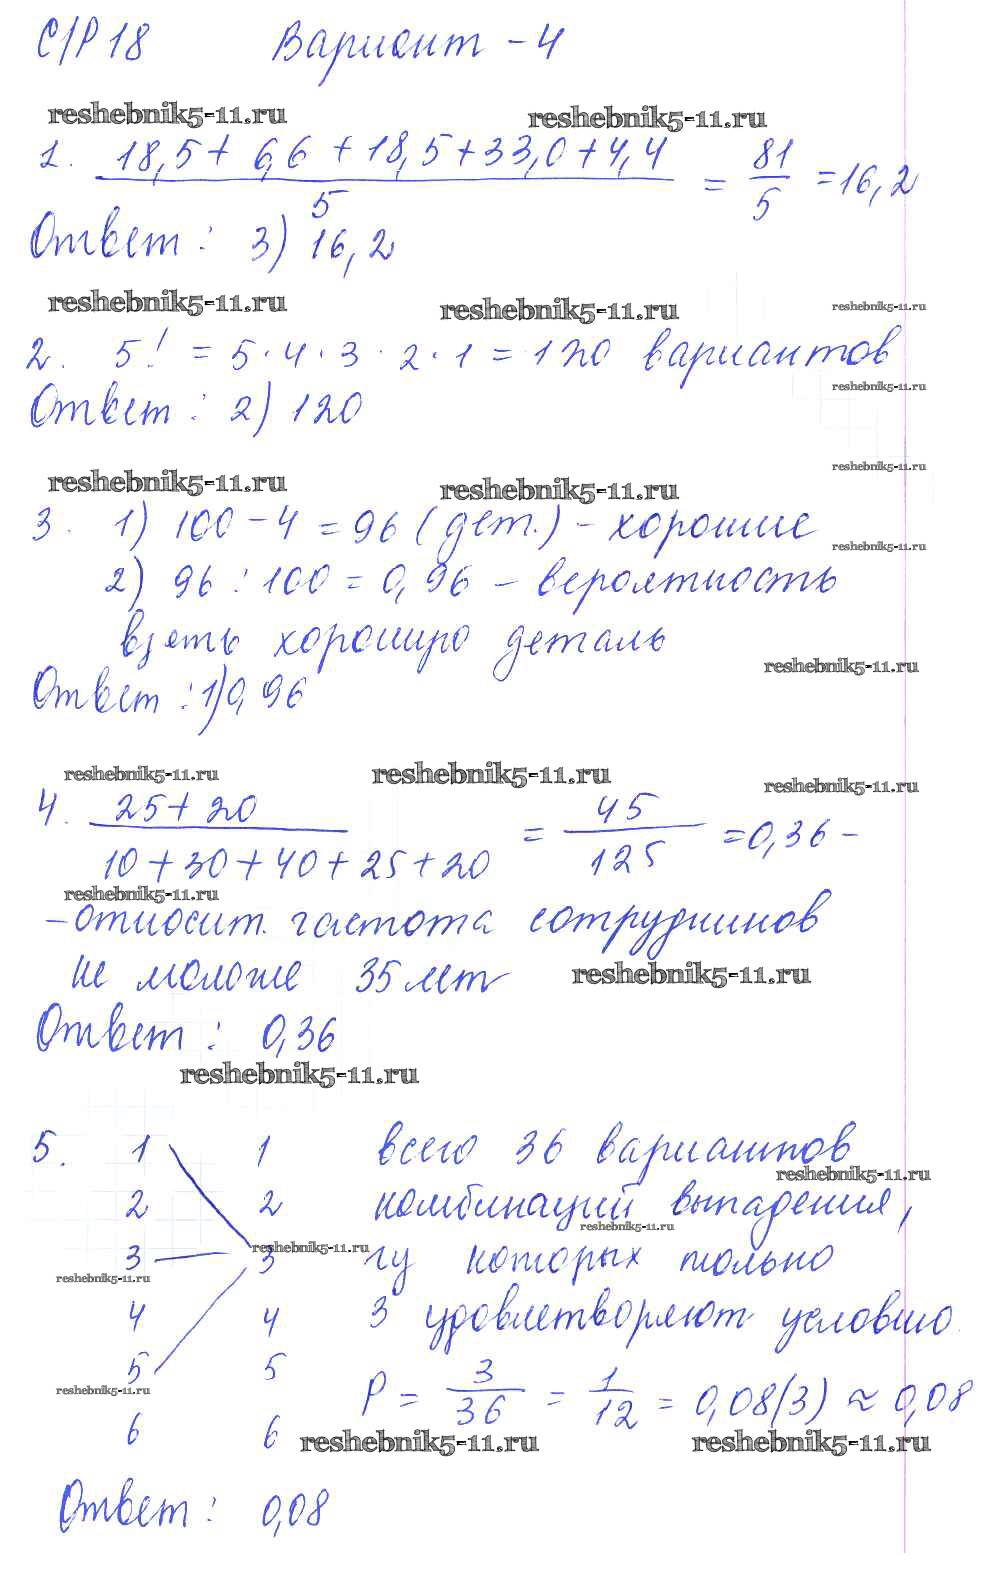 С/Р 18 Вариант - 4
reshebnik5-11.ru reshebnik5-11.ru
1. 18,5 + 6,6 + 18,5 + 33,0 + 4,4 / 5 = 81 / 5 = 16,2
Ответ: 3) 16,2
reshebnik5-11.ru reshebnik5-11.ru reshebnik5-11.ru
2. 5! = 5 · 4 · 3 · 2 · 1 = 120 вариантов
reshebnik5-11.ru
Ответ: 2) 120
reshebnik5-11.ru
reshebnik5-11.ru reshebnik5-11.ru
3. 1) 100 - 4 = 96 (дет.) - хорошие
reshebnik5-11.ru
2) 96 : 100 = 0,96 - вероятность
взять хорошую деталь
reshebnik5-11.ru
Ответ: 1) 0,96
reshebnik5-11.ru reshebnik5-11.ru reshebnik5-11.ru
4. 25 + 20 / 10 + 30 + 40 + 25 + 20 = 45 / 125 = 0,36 -
reshebnik5-11.ru
- относит. частота сотрудников
не моложе 35 лет
reshebnik5-11.ru
Ответ: 0,36
reshebnik5-11.ru
5. 1 1 всего 36 вариантов
reshebnik5-11.ru
2 2 комбинаций выпадения,
reshebnik5-11.ru
reshebnik5-11.ru
3 3 из которых только
reshebnik5-11.ru
4 4 3 удовлетворяют условию.
5 5 P = 3 / 36 = 1 / 12 = 0,08(3) ≈ 0,08
reshebnik5-11.ru
6 6
reshebnik5-11.ru reshebnik5-11.ru
Ответ: 0,08